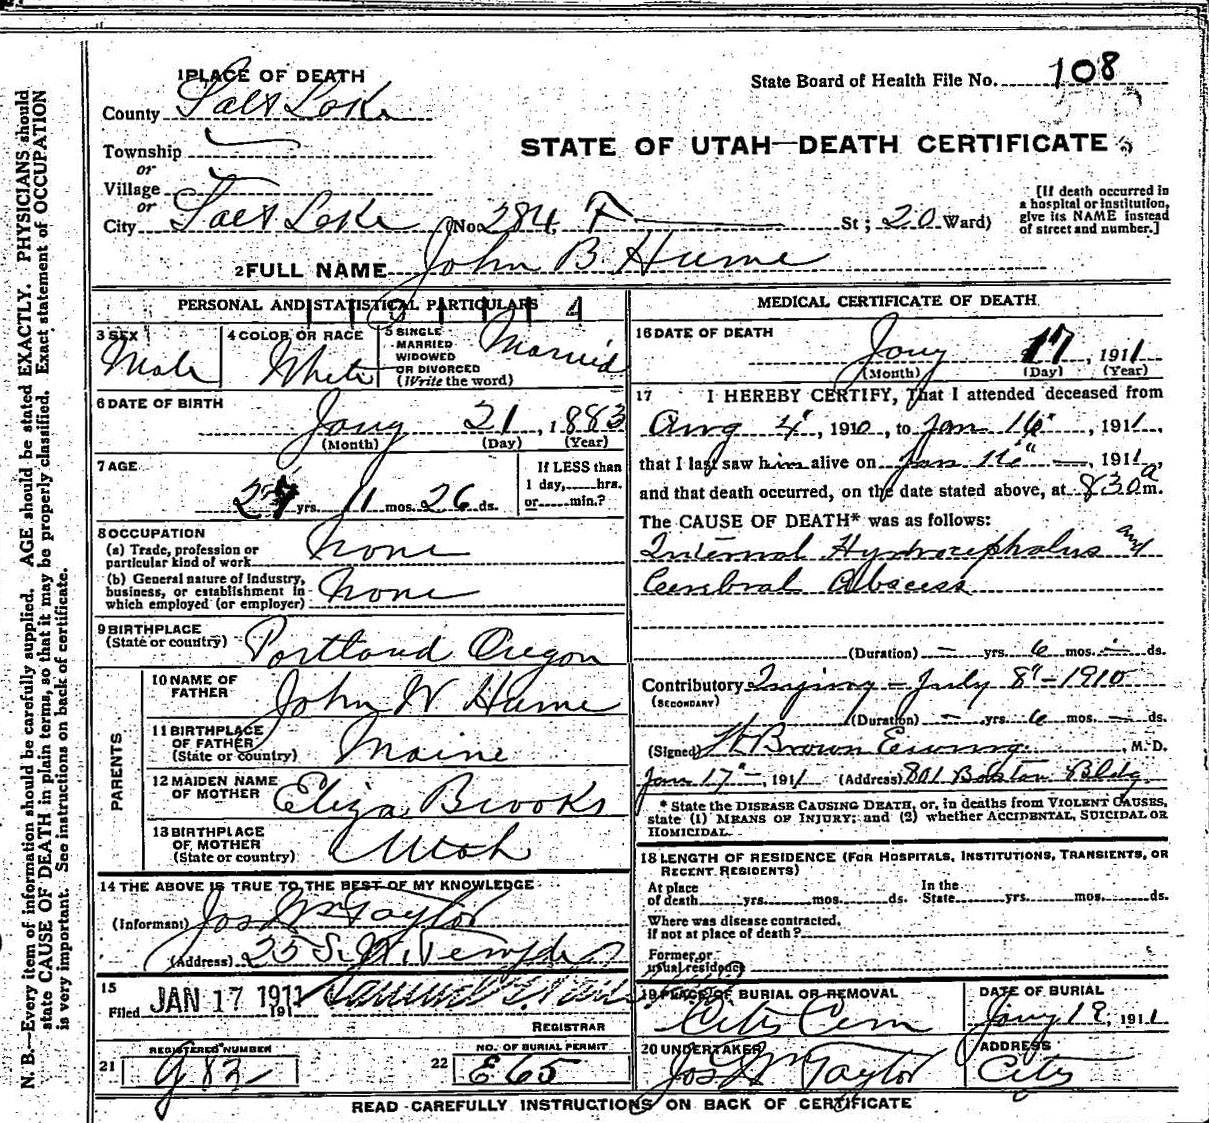 1 PLACE OF DEATH
State Board of Health File No. 108
County Salt Lake
STATE OF UTAH—DEATH CERTIFICATE
Township
or
Village
or
City Salt Lake (No. 284 F St; 20 Ward)
[If death occurred in
a hospital or institution,
give its NAME instead
of street and number.]
2 FULL NAME John B Hume
PERSONAL AND STATISTICAL PARTICULARS
3 SEX
Male
4 COLOR OR RACE
White
5 SINGLE
MARRIED
WIDOWED
OR DIVORCED
(Write the word)
Married
6 DATE OF BIRTH
Jany 21, 1883
(Month) (Day) (Year)
7 AGE
27 yrs. 11 mos. 26 ds.
If LESS than
1 day, hrs.
or min.?
8 OCCUPATION
(a) Trade, profession or
particular kind of work None
(b) General nature of Industry,
business, or establishment in
which employed (or employer) None
9 BIRTHPLACE
(State or country) Portland Oregon
PARENTS
10 NAME OF
FATHER John W Hume
11 BIRTHPLACE
OF FATHER
(State or country) Maine
12 MAIDEN NAME
OF MOTHER Eliza Brooks
13 BIRTHPLACE
OF MOTHER
(State or country) Utah
14 THE ABOVE IS TRUE TO THE BEST OF MY KNOWLEDGE
(Informant) Jos Wm Taylor
(Address) 25 S. W. Temple
15
Filed JAN 17 1911 191
REGISTRAR
21 REGISTERED NUMBER
G 82
22 NO. OF BURIAL PERMIT
E 65
MEDICAL CERTIFICATE OF DEATH
16 DATE OF DEATH
Jany 17, 1911
(Month) (Day) (Year)
17 I HEREBY CERTIFY, That I attended deceased from
Aug 4", 1910, to Jan 16", 1911,
that I last saw him alive on Jan 16", 1911,
and that death occurred, on the date stated above, at 830 a m.
The CAUSE OF DEATH* was as follows:
Internal Hydrocephalus and
Cerebral Abscess
(Duration) — yrs. 6 mos. — ds.
Contributory Injury – July 8" – 1910
(SECONDARY)
(Duration) — yrs. 6 mos. — ds.
(Signed) W Brown Ewing, M. D.
Jan 17", 1911 (Address) 801 Boston Bldg
* State the DISEASE CAUSING DEATH, or, in deaths from VIOLENT CAUSES,
state (1) MEANS OF INJURY; and (2) whether ACCIDENTAL, SUICIDAL OR
HOMICIDAL.
18 LENGTH OF RESIDENCE (FOR HOSPITALS, INSTITUTIONS, TRANSIENTS, OR
RECENT RESIDENTS)
At place
of death yrs. mos. ds.
In the
State yrs. mos. ds.
Where was disease contracted,
if not at place of death?
Former or
usual residence
19 PLACE OF BURIAL OR REMOVAL
City Cem
DATE OF BURIAL
Jany 18, 1911
20 UNDERTAKER
Jos Wm Taylor
ADDRESS
City
READ CAREFULLY INSTRUCTIONS ON BACK OF CERTIFICATE
N. B.—Every item of information should be carefully supplied. AGE should be stated EXACTLY. PHYSICIANS should
state CAUSE OF DEATH in plain terms, so that it may be properly classified. Exact statement of OCCUPATION
is very important. See instructions on back of certificate.